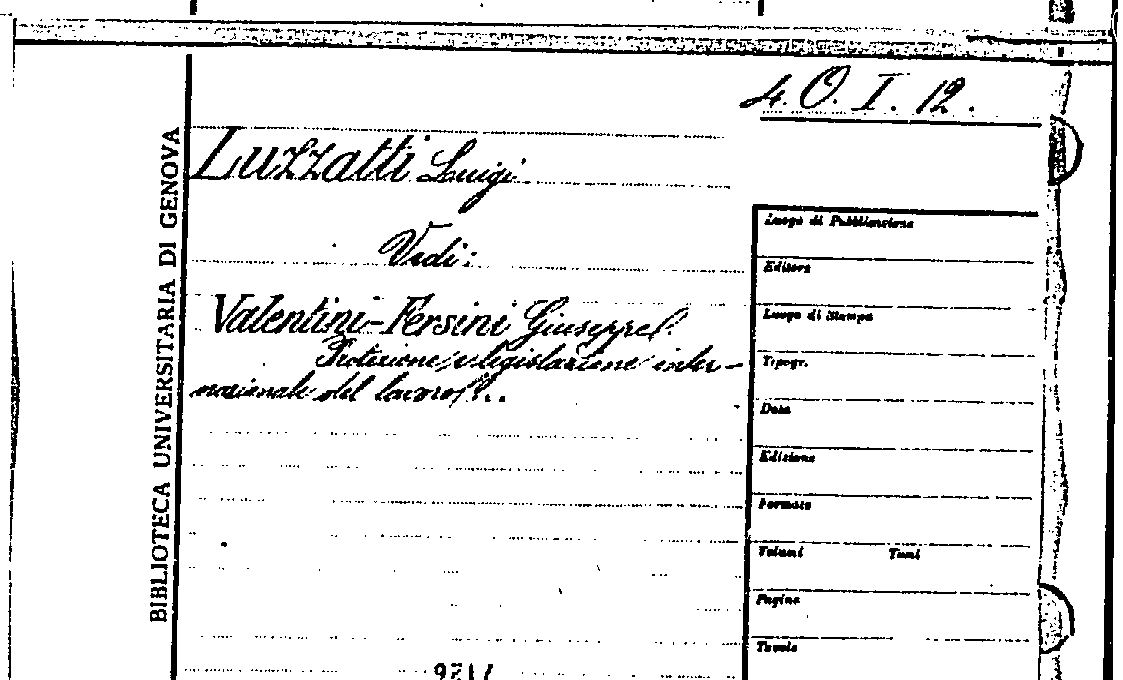 4. O. I. 12.
BIBLIOTECA UNIVERSITARIA DI GENOVA
Luzzatti Luigi
Vedi:
Valentini-Fersini Giuseppe
Protezione e legislazione inter-
nazionale del lavoro
Luogo di Pubblicazione
Editore
Luogo di Stampa
Tipogr.
Data
Edizione
Formato
Volumi Tomi
Pagine
Tavole